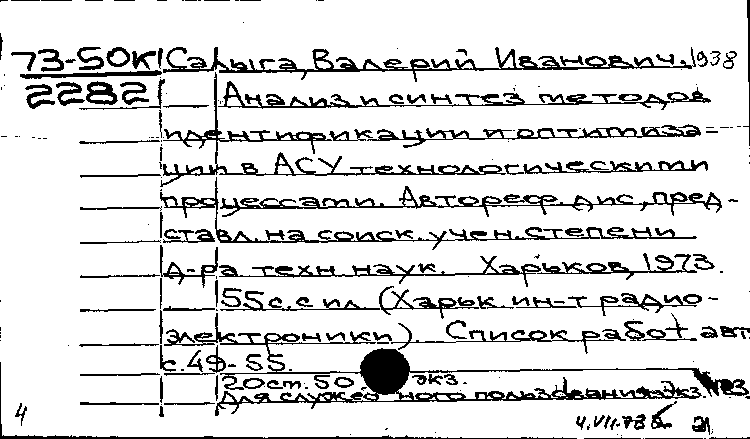 73-50К Салыга, Валерий Иванович, 1938
2282 Анализ и синтез методов
идентификации и оптимиза-
ции в АСУ технологическими
процессами. Автореф. дис., пред-
ставл. на соиск. учен. степени
д-ра техн. наук. Харьков, 1973.
55 с. с ил. (Харьк. ин-т радио-
электроники). Список работ авт.
с. 49-55.
20 ст. 50 экз.
Для служеб ного пользования. Экз.
4 4.VII.73 21